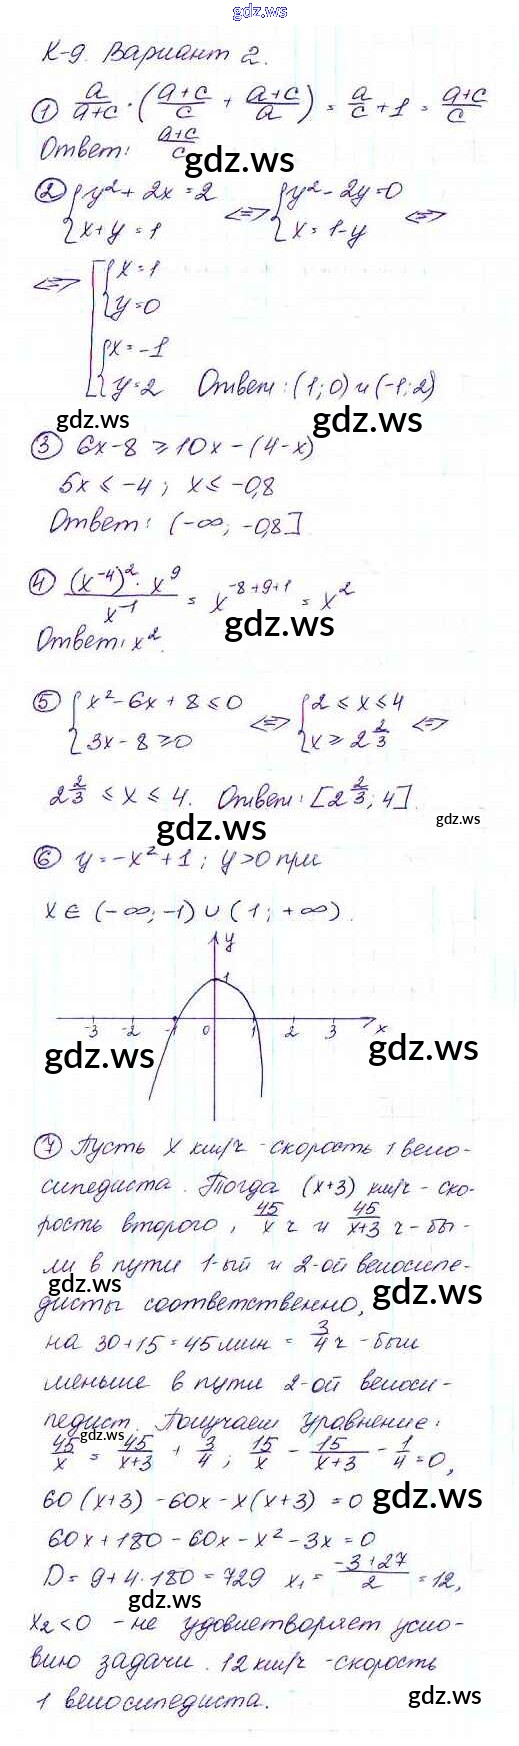 gdz.ws
К-9. Вариант 2.
① a/(a+c) · ((a+c)/c + (a+c)/a) = a/c + 1 = (a+c)/c
Ответ: (a+c)/c
gdz.ws
② { y² + 2x = 2 ; x + y = 1 ⇔ { y² - 2y = 0 ; x = 1 - y ⇔
⇔ [ { x = 1 ; y = 0
{ x = -1 ; y = 2 Ответ: (1; 0) и (-1; 2)
gdz.ws gdz.ws
③ 6x - 8 ⩾ 10x - (4 - x)
5x ⩽ -4 ; x ⩽ -0,8
Ответ: (-∞; -0,8]
④ ((x⁻⁴)² · x⁹)/x⁻¹ = x⁻⁸⁺⁹⁺¹ = x²
gdz.ws
Ответ: x².
⑤ { x² - 6x + 8 ⩽ 0 ; 3x - 8 ⩾ 0 ⇔ { 2 ⩽ x ⩽ 4 ; x ⩾ 2 2/3 ⇔
2 2/3 ⩽ x ⩽ 4. Ответ: [2 2/3; 4].
gdz.ws gdz.ws
⑥ y = -x² + 1 ; y > 0 при
x ∈ (-∞; -1) ∪ (1; +∞).
y
1
-3 -2 -1 0 1 2 3 x
gdz.ws gdz.ws
⑦ Пусть x км/ч - скорость 1 вело-
сипедиста. Тогда (x+3) км/ч - ско-
рость второго, 45/x ч и 45/(x+3) ч - бы-
ли в пути 1-ый и 2-ой велосипе-
gdz.ws gdz.ws
дисты соответственно,
на 30 + 15 = 45 мин = 3/4 ч - был
меньше в пути 2-ой велоси-
педист. Получаем уравнение:
gdz.ws
45/x = 45/(x+3) + 3/4 ; 15/x - 15/(x+3) - 1/4 = 0,
60(x+3) - 60x - x(x+3) = 0
gdz.ws
60x + 180 - 60x - x² - 3x = 0
D = 9 + 4·180 = 729 x₁ = (-3+27)/2 = 12,
gdz.ws
x₂ < 0 - не удовлетворяет усло-
вию задачи. 12 км/ч - скорость
1 велосипедиста.
gdz.ws
gdz.ws gdz.ws